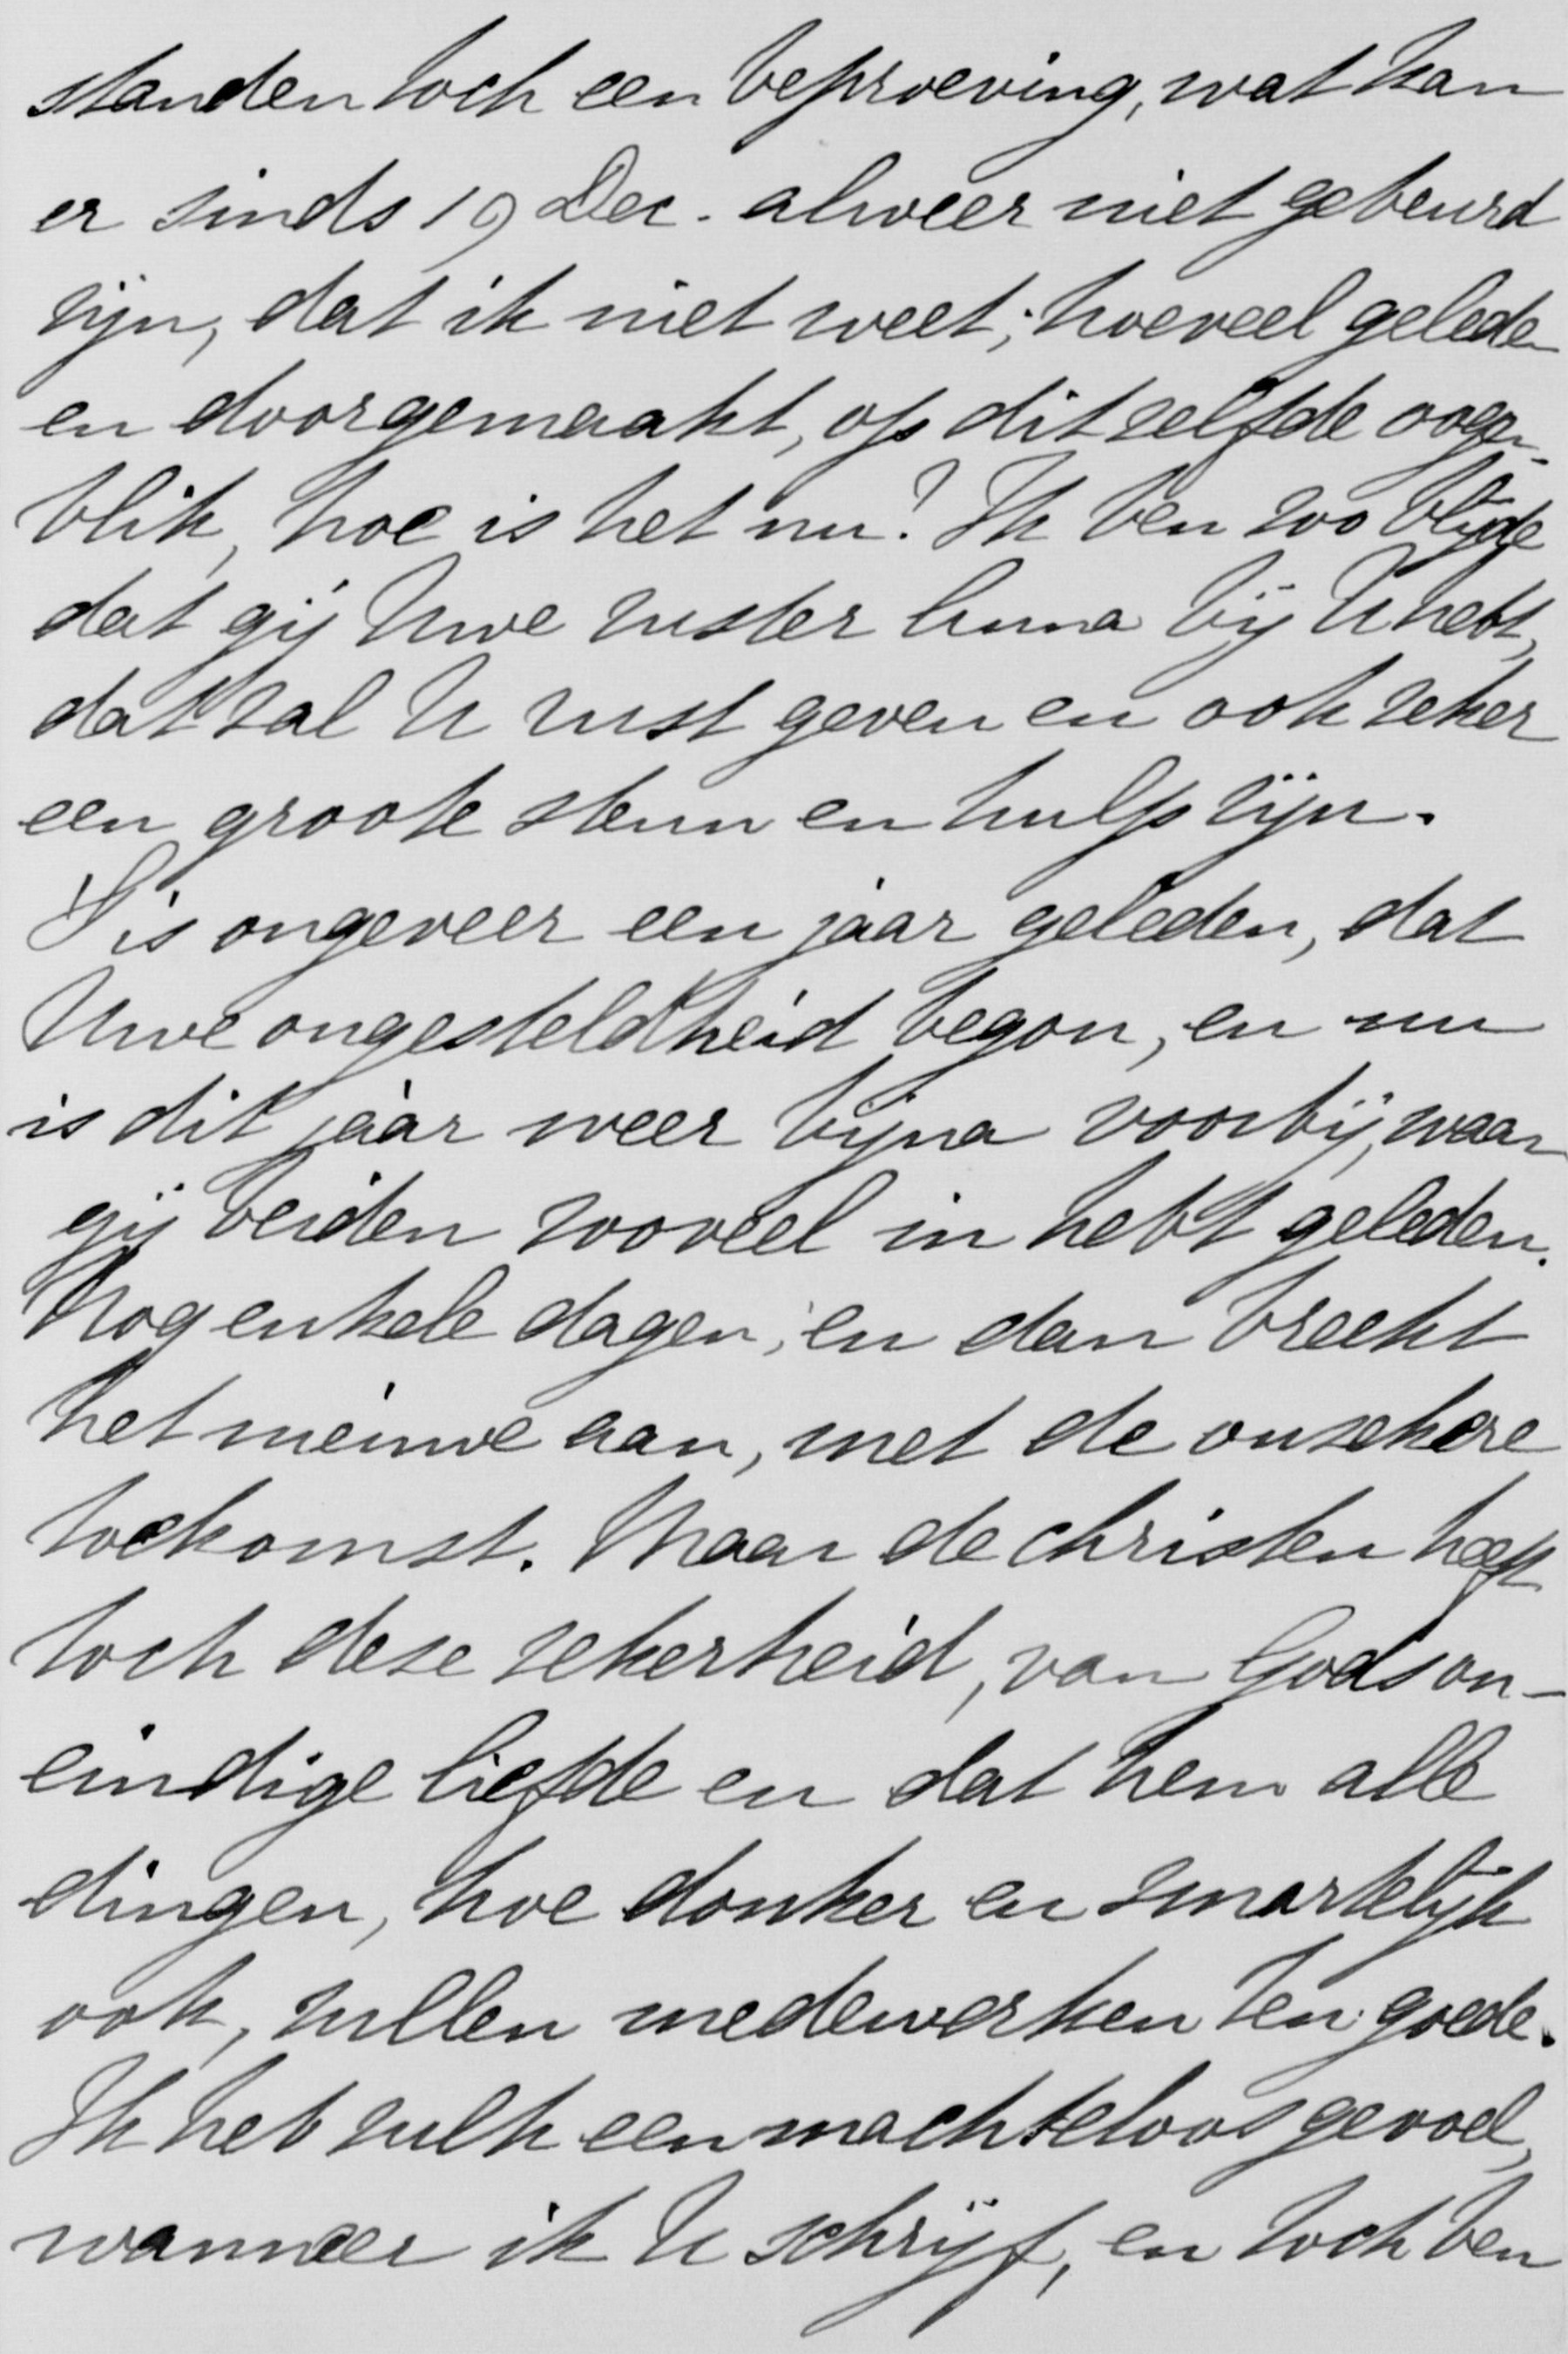 standen toch een beproeving, wat kan
er sinds 19 Dec. alweer niet gebeurd
zijn, dat ik niet weet; hoeveel geleden
en doorgemaakt, op ditzelfde oogen-
blik, hoe is het nu? Ik ben zoo blijde
dat gij Uwe zuster Anna bij U hebt,
dat zal U rust geven en ook zeker
een groote steun en hulp zijn.
't Is ongeveer een jaar geleden, dat
Uwe ongesteldheid begon, en nu
is dit jaar weer bijna voorbij, waar
gij beiden zooveel in hebt geleden.
Nog enkele dagen, en dan breekt
het nieuwe aan, met de onzekere
toekomst. Maar de christen heeft
toch deze zekerheid, van Gods on-
eindige liefde en dat hem alle
dingen, hoe donker en smartelijk
ook, zullen medewerken ten goede.
Ik heb zulk een machteloos gevoel,
wanneer ik U schrijf, en toch ben